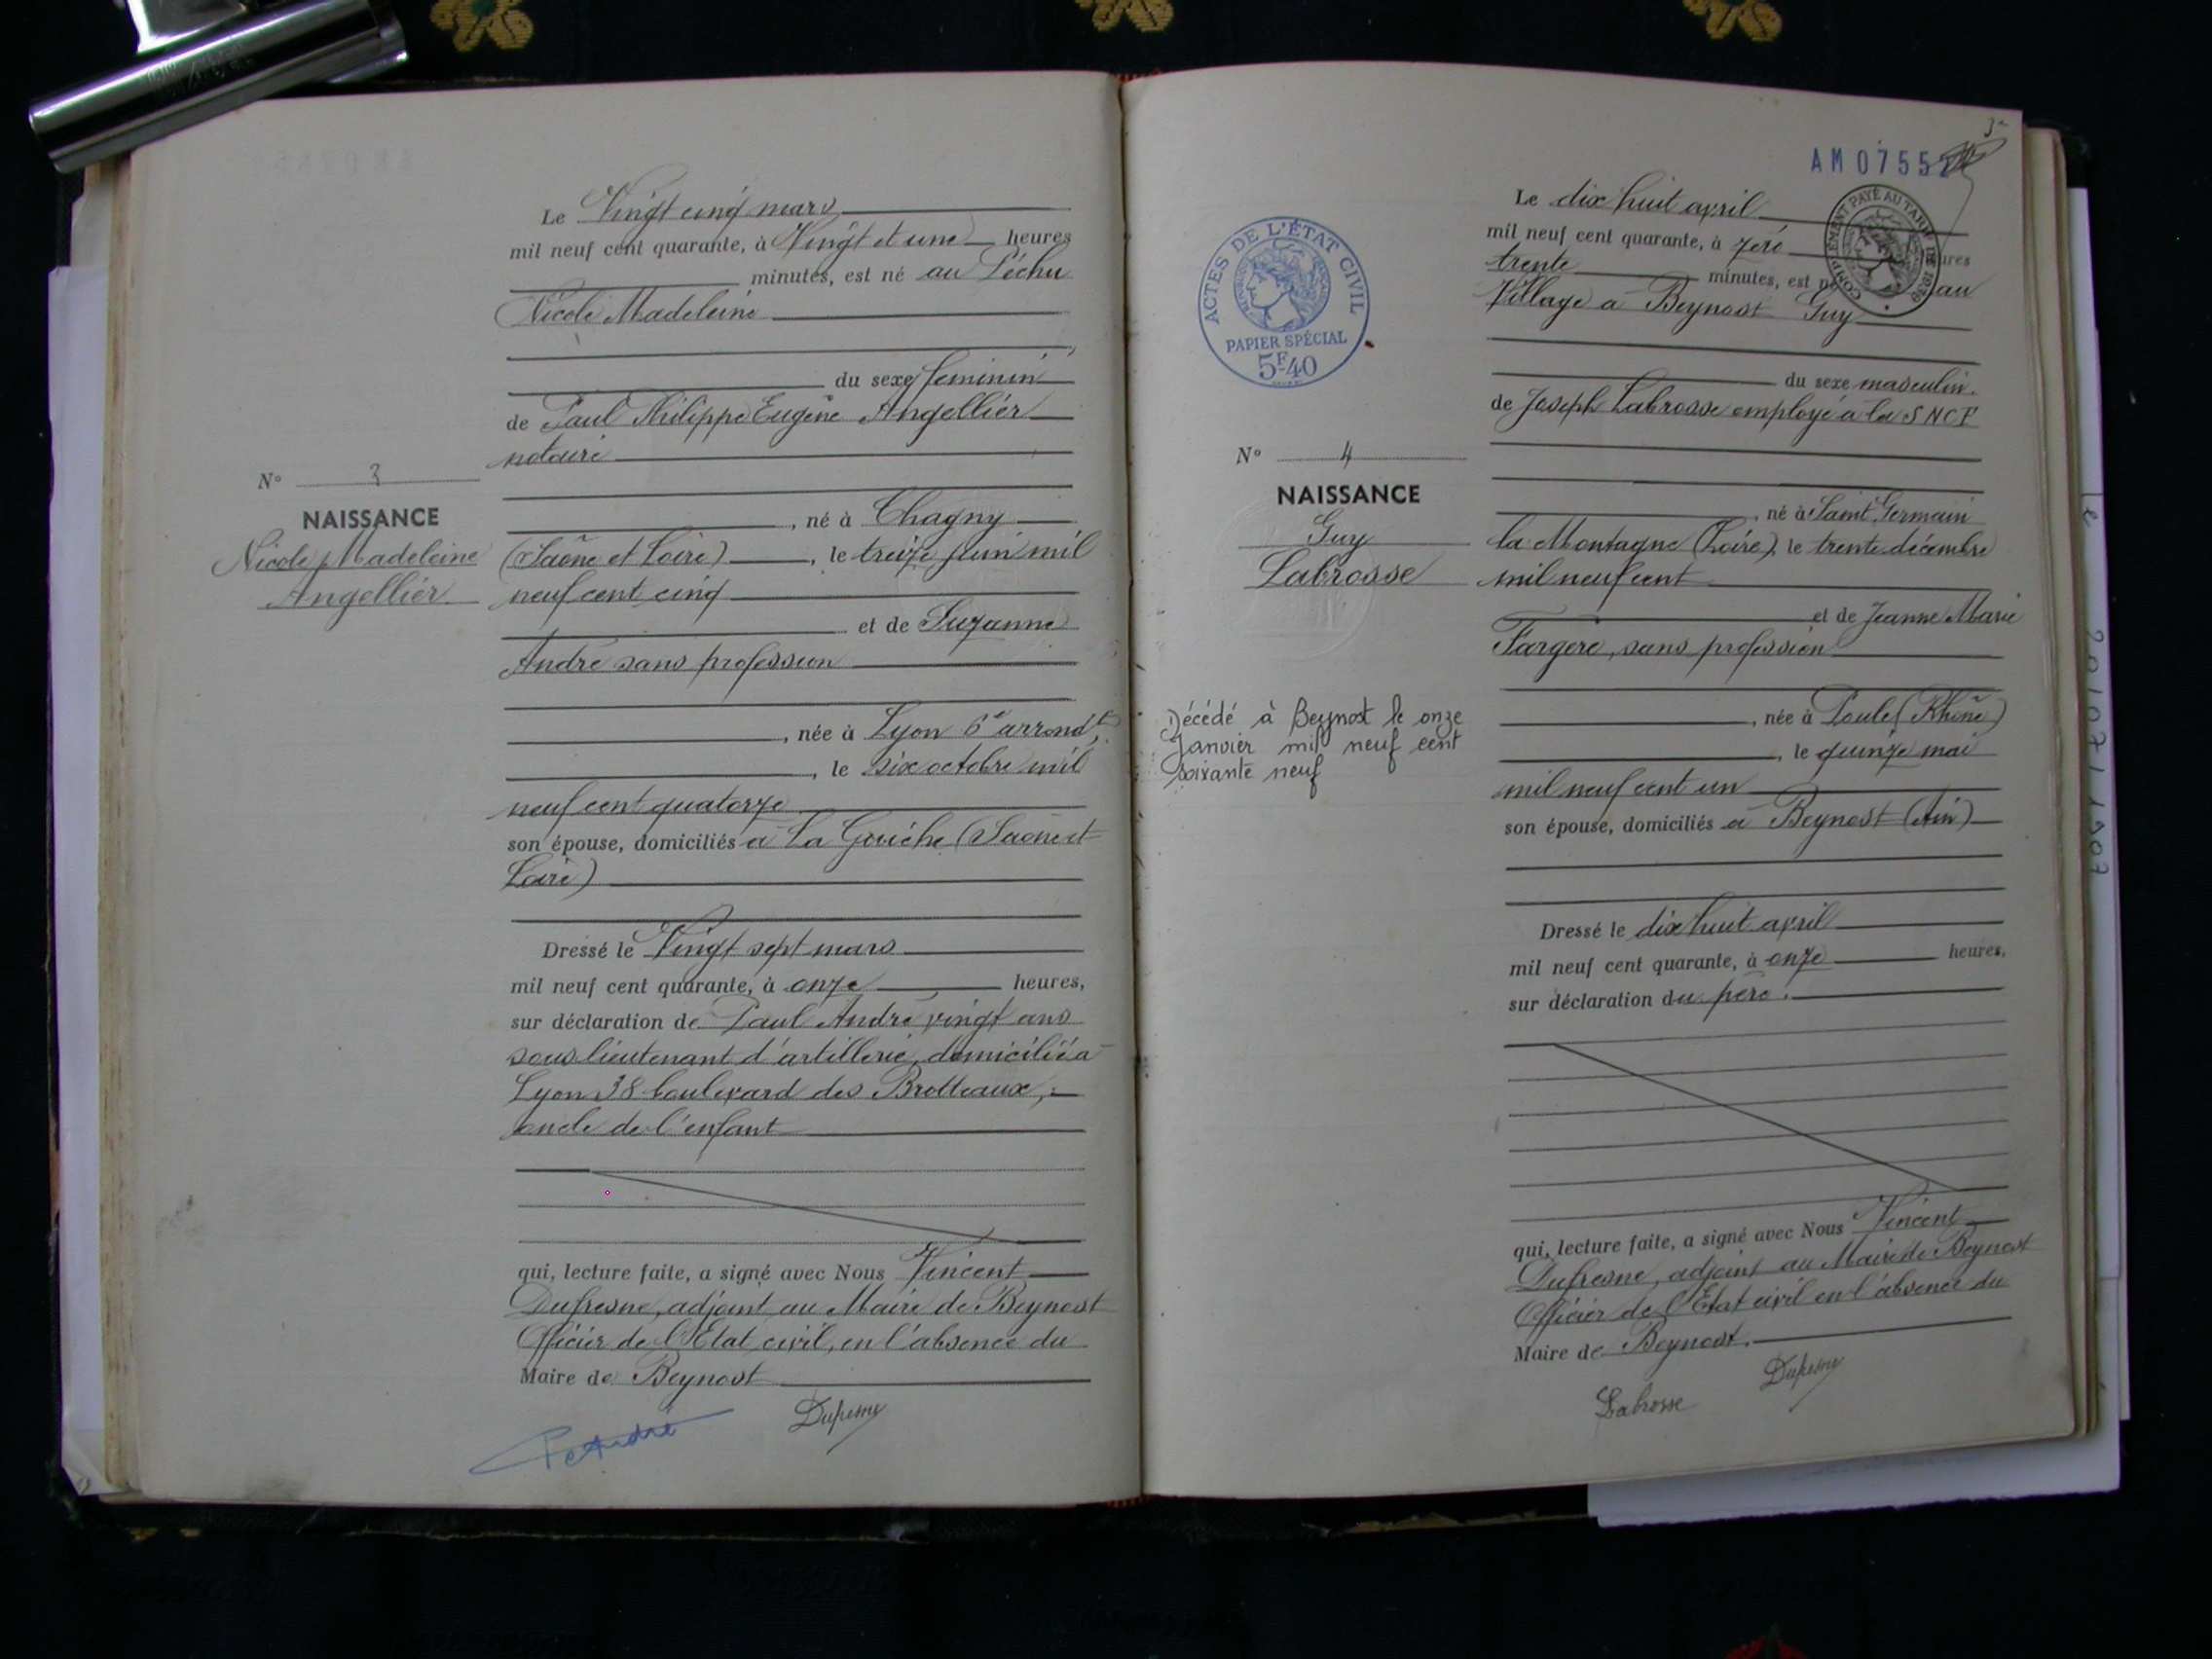 Le Vingt cinq mars
mil neuf cent quarante, à Vingt et une heures
minutes, est né au Péchu
Nicole Madeleine
du sexe féminin
de Paul Philippe Eugène Angellier
notaire
N° 3
NAISSANCE
Nicole Madeleine
Angellier
, né à Chagny
(Saône et Loire), le treize juin mil
neuf cent cinq
et de Suzanne
André sans profession
, née à Lyon 6e arrondt
, le six octobre mil
neuf cent quatorze
son épouse, domiciliés à La Guiche (Saône et
Loire)
Dressé le Vingt sept mars
mil neuf cent quarante, à onze heures,
sur déclaration de Paul André vingt ans
sous lieutenant d'artillerie, domicilié à
Lyon 38 boulevard des Brotteaux,
oncle de l'enfant
qui, lecture faite, a signé avec Nous Vincent
Dufresne, adjoint au Maire de Beynost
Officier de l'Etat civil, en l'absence du
Maire de Beynost
P Andre
Dufresne
3
AM 0755
ACTES DE L'ÉTAT CIVIL
PAPIER SPÉCIAL
5F40
COMPLÉMENT PAYÉ AU TARIF DE 1939
Le dix huit avril
mil neuf cent quarante, à zéro heures
trente minutes, est né au
Village à Beynost Guy
du sexe masculin.
de Joseph Labrosse employé à la SNCF
N° 4
NAISSANCE
Guy
Labrosse
, né à Saint Germain
la Montagne (Loire), le trente décembre
mil neuf cent
et de Jeanne Marie
Fargère, sans profession
Décédé à Beynost le onze
Janvier mil neuf cent
soixante neuf
, née à Poule (Rhône)
, le quinze mai
mil neuf cent un
son épouse, domiciliés à Beynost (Ain)
Dressé le dix huit avril
mil neuf cent quarante, à onze heures,
sur déclaration du père.
qui, lecture faite, a signé avec Nous Vincent
Dufresne, adjoint au Maire de Beynost
Officier de l'Etat civil en l'absence du
Maire de Beynost.
Labrosse
Dufresne